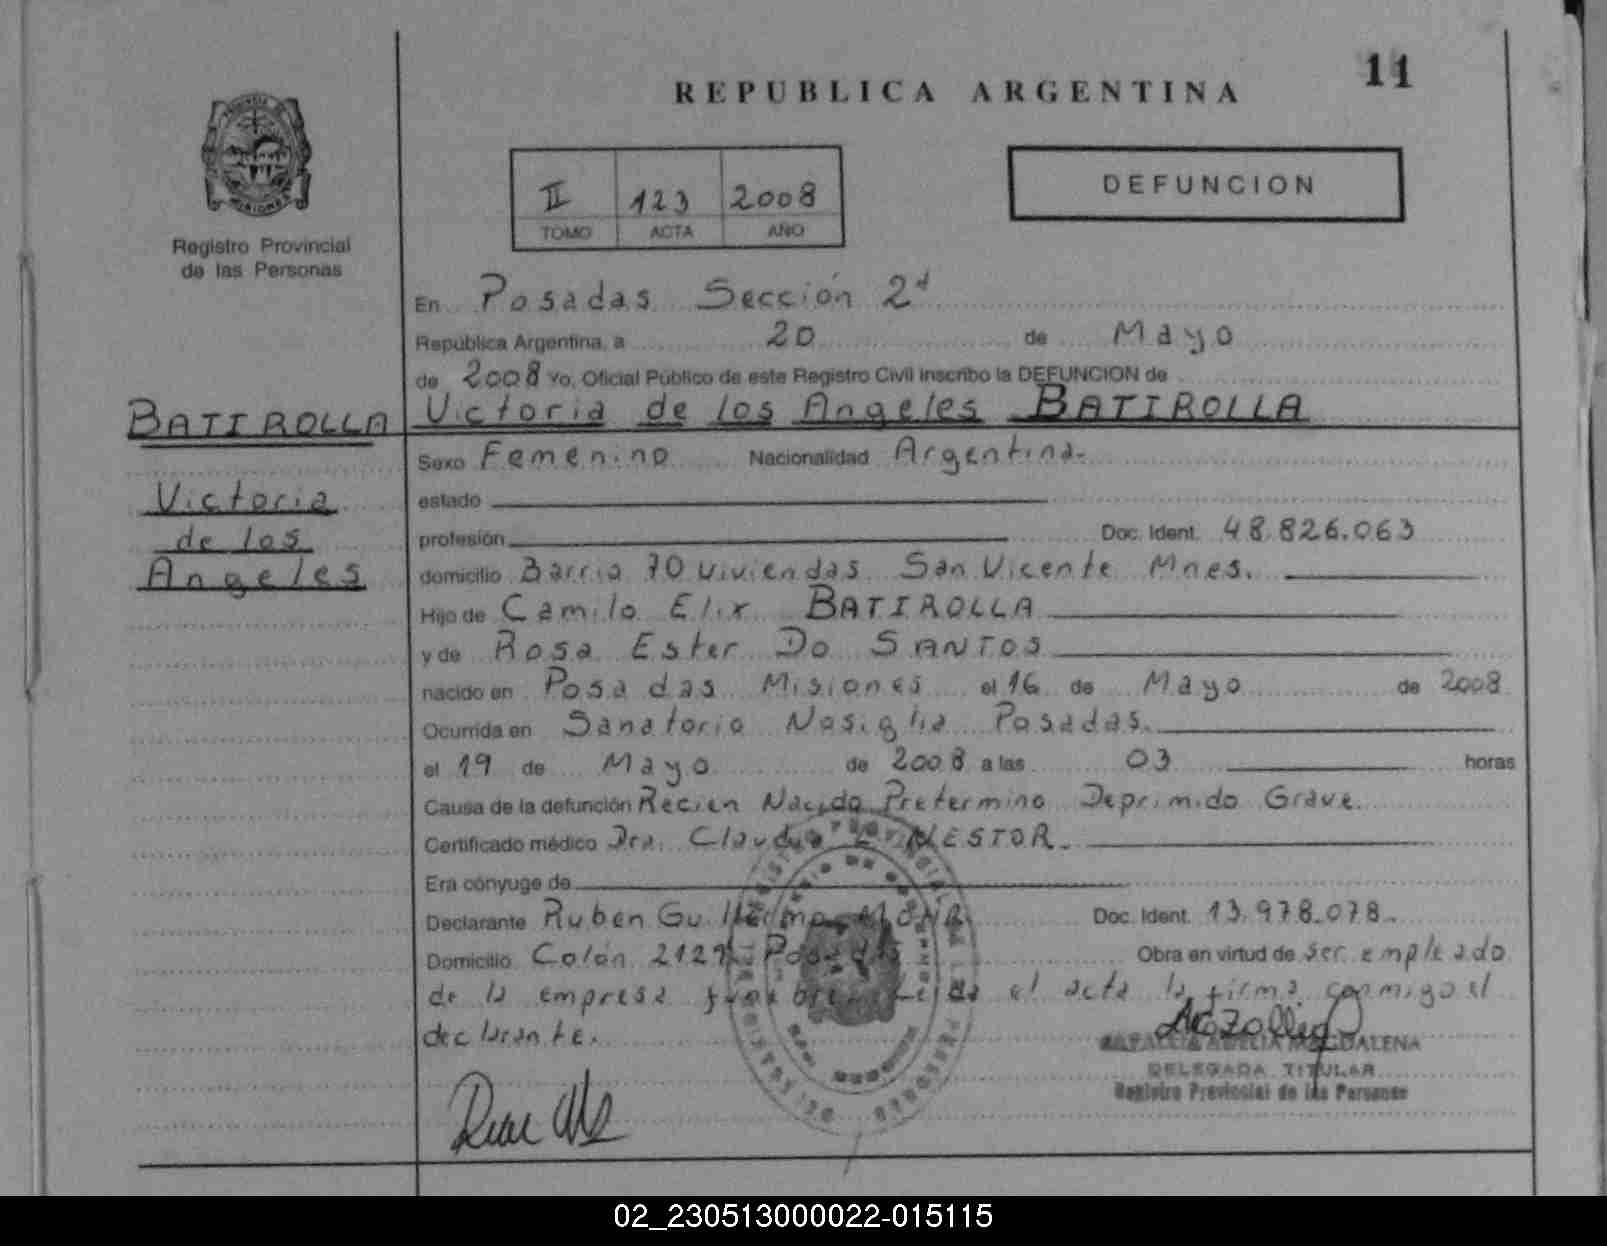 11
REPUBLICA ARGENTINA
II 123 2008
TOMO ACTA AÑO
DEFUNCION
MISIONES
Registro Provincial
de las Personas
En Posadas Sección 2ª
República Argentina, a 20 de Mayo
de 2008 Yo, Oficial Público de este Registro Civil inscribo la DEFUNCION de
BATIROLLA
Victoria de los Angeles BATIROLLA
Victoria
de los
Angeles
Sexo Femenino Nacionalidad Argentina.
estado
profesión Doc. Ident. 48.826.063
domicilio Barrio 70 viviendas San Vicente Mnes.
Hijo de Camilo Elix BATIROLLA
y de Rosa Ester Do SANTOS
nacido en Posadas Misiones el 16 de Mayo de 2008
Ocurrida en Sanatorio Nosiglia Posadas.
el 19 de Mayo de 2008 a las 03 horas
Causa de la defunción Recien Nacido Pretermino Deprimido Grave.
Certificado médico Dra. Claudia NESTOR.
Era cónyuge de
Declarante Ruben Guillermo Doc. Ident. 13.978.078.
Domicilio Colón 2129 Posadas Obra en virtud de ser empleado
de la empresa funebre Leida el acta la firma conmigo el
declarante.
MAGDALENA
DELEGADA TITULAR
Registro Provincial de las Personas
02_230513000022-015115